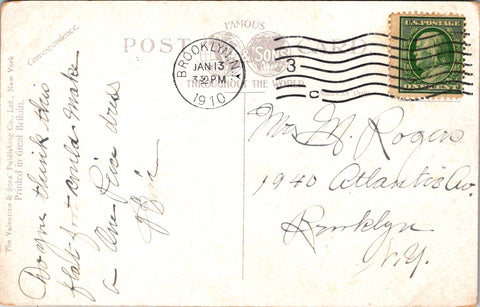 The Valentine & Sons' Publishing Co., Ltd., New York
Printed in Great Britain.
Correspondence.
Do you think this
flat could make
a One Piece dress
FAMOUS
POST CARD
SONS
THROUGHOUT THE WORLD
BROOKLYN, N.Y.
JAN 13
3 30 PM
1910
3
C
U.S. POSTAGE
ONE CENT
Mrs M. Rogers
1940 Atlantic Av.
Brooklyn
N.Y.